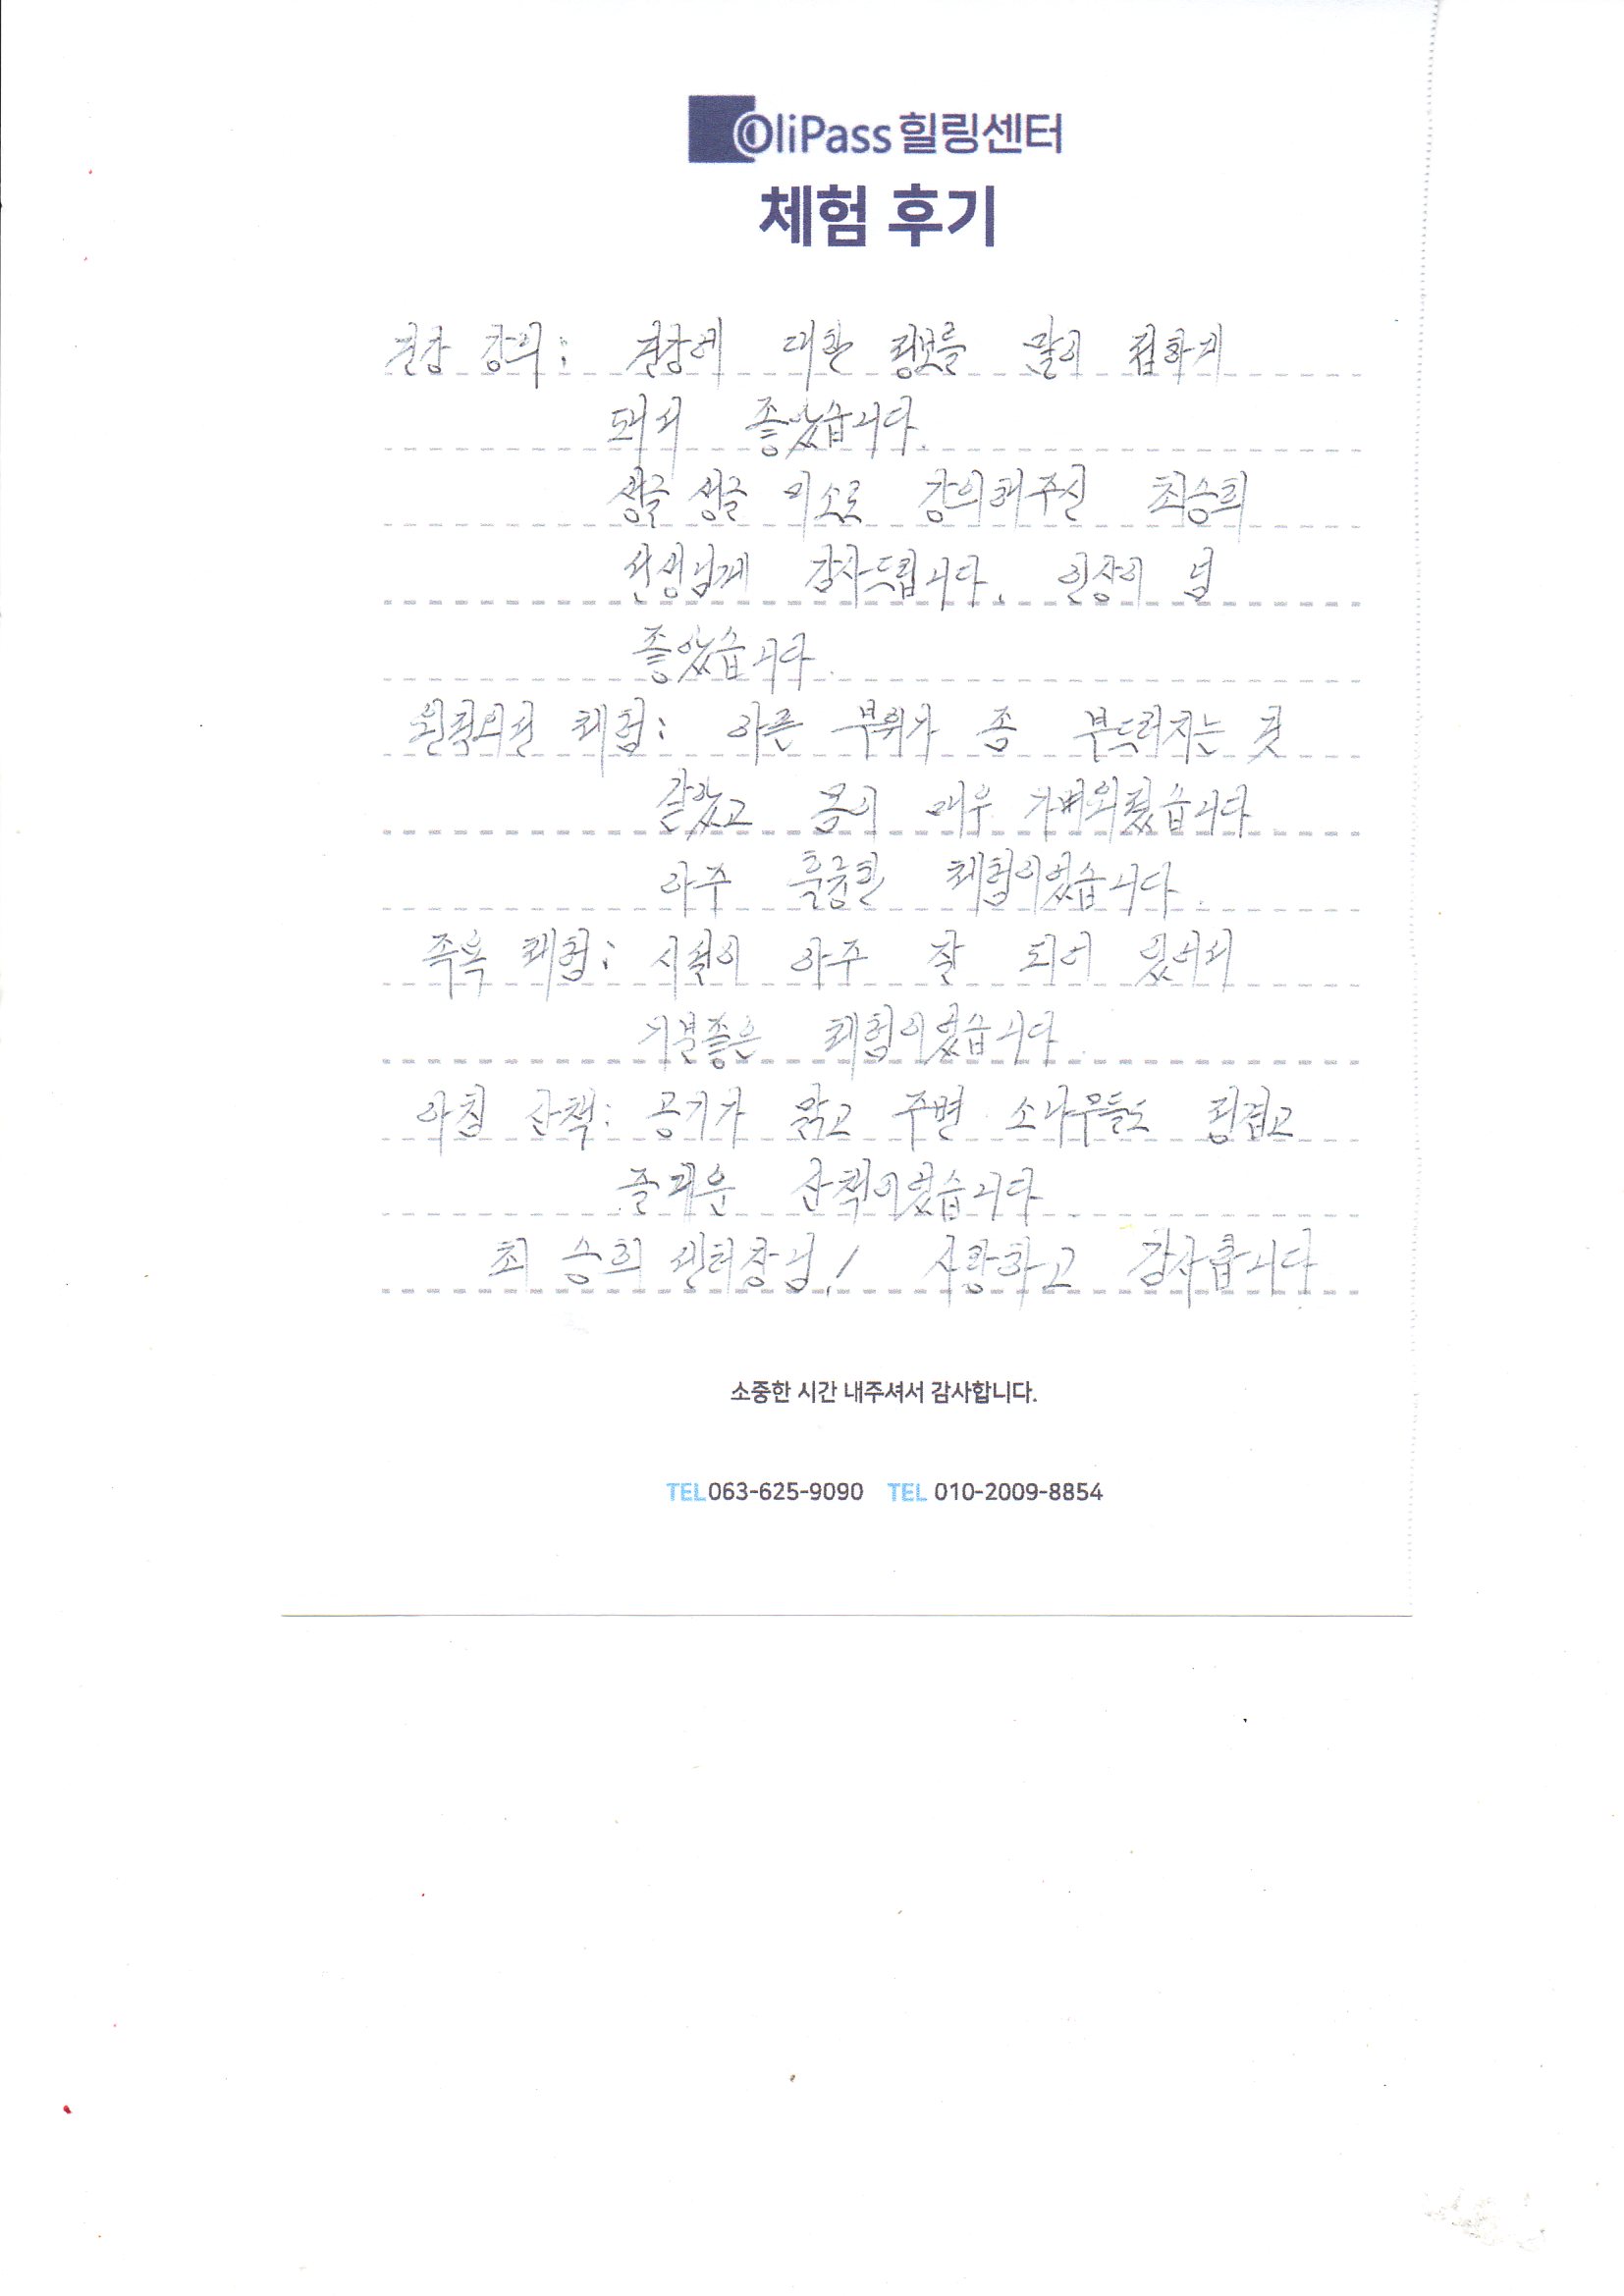 OliPass 힐링센터
체험 후기
건강 강의: 건강에 대한 정보를 많이 접하게
돼서 좋았습니다.
싱글 싱글 미소로 강의해주신 최승희
선생님께 감사드립니다. 인상이 넘
좋았습니다.
원적외선 체험: 아픈 부위가 좀 부드러지는 것
같았고 몸이 매우 가벼워졌습니다
아주 특급한 체험이었습니다.
족욕 체험: 시설이 아주 잘 되어 있어서
기분좋은 체험이었습니다.
아침 산책: 공기가 맑고 주변 소나무들도 정겹고
즐거운 산책이었습니다
최 승희 센터장님! 사랑하고 감사합니다
소중한 시간 내주셔서 감사합니다.
TEL 063-625-9090 TEL 010-2009-8854